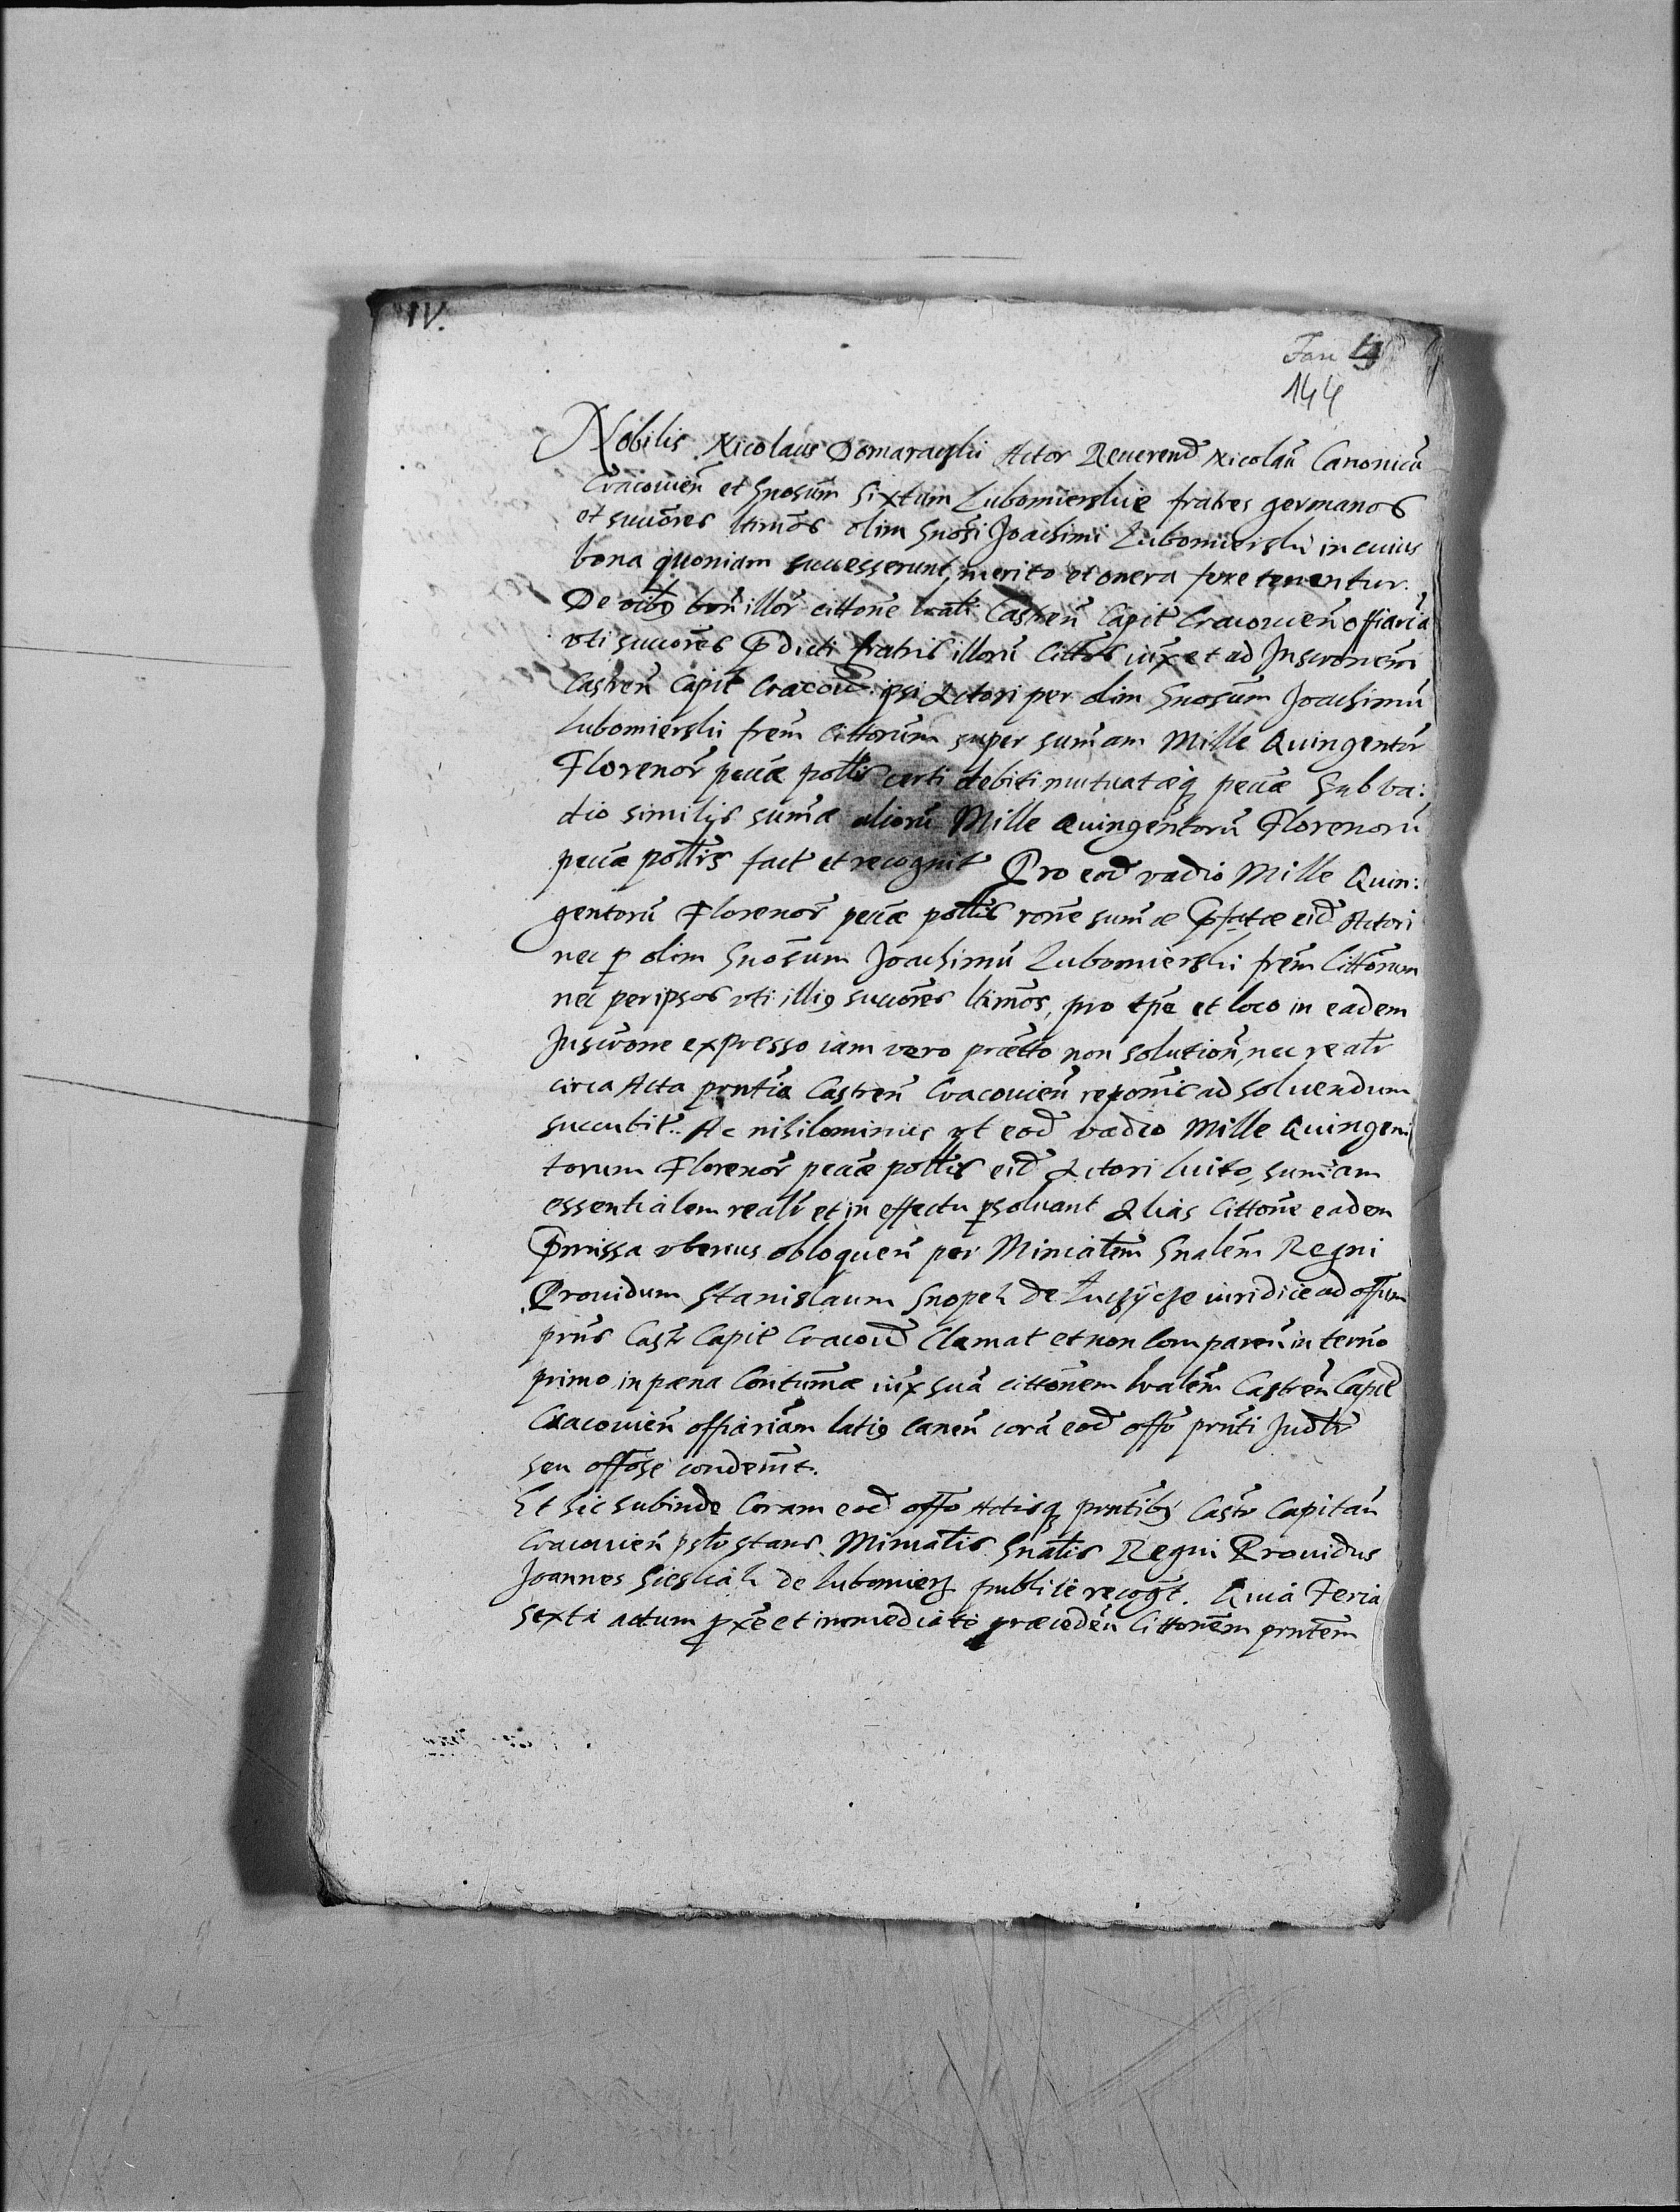 IV.
Jan 19
144
Nobilis Nicolaus Domaraczki Actor Reuerend̃ Nicolaũ Canonicũ
Cracouień et Gnosum̃ Sixtum Lubomierskie fratres germanos
et succõres ltimõs olim Gnõsi Joachimi Lubomierski in cuius
bona quoniam successerunt, merito et onera ferre tenentur.
De oibꝫ boñ illoř cittoñe Castreń Capit̃ Cracouień offiaria
vti succõres p̃dicti fratris illorũ Cittõs iux̃ et ad Inscronem̃
Castreń Capit̃ Cracoũ ipsi Actori per olim Gnosum̃ Joachimũ
Lubomierski frem̃ Cittorum̃ super sum̃am Mille Quingentoř
Florenoř pecc̃æ pollis̃ certi debiti mutuatæqꝫ pecc̃æ Sub va:
dio similis sum̃æ aliorũ Mille Quingentorũ Florenorũ
pecc̃æ pollis̃ fact̃ et recognit̃ Pro eod̃ vadio Mille Quin:
gentorũ Florenoř pecc̃æ pollis̃ rone sum̃æ p̃fatæ eid̃ Actori
nec p̱ olim Gnosum̃ Joachimũ Lubomierski frem̃ Cittorum̃
nec per ipsos vti illiꝯ succõres ltimõs, pro tp̃e et loco in eadem
Inscrone expresso iam vero præt̃to non solution̂, nec realr̃
circa Acta pnt̃ia Castreń Cracouień reponit̃ ad soluendum
succubit̃. Ac nihilominus vt eod̃ vadio Mille Quingen
torum Florenoř pecc̃æ pollis̃ eid̃ Actori luito, sum̃am
essentialem realr̃ et in effectu p̱soluant Alias Cittoñe eadem
p̃missa vberius obloqueń per Minialem̃ Gnalem̃ Regni
Prouidum Stanislaum Snopek de juridice ad offium
pñs Castř Capit̃ Cracoũ Clamat̃ et non Compareń in termo
primo in pæna Contumæ iux̃ suã cittonem̃ Castreń Capit̃
Cracouień offiariam latiꝯ caneń corã eod̃ offo pnt̃i
seu offose condemt̃.
Et sic subinde Coram eod̃ offo Actisqꝫ pnt̃ibꝫ Castř Capitań
Cracouień pslr̃ stans Minialis̃ Gnalis̃ Regni Prouidus
Joannes Siesliak de Lubomierz publice recogt̃. Quia Feria
Sexta actum p̱xe et immediate præcedeń Cittonem̃ pntem̃